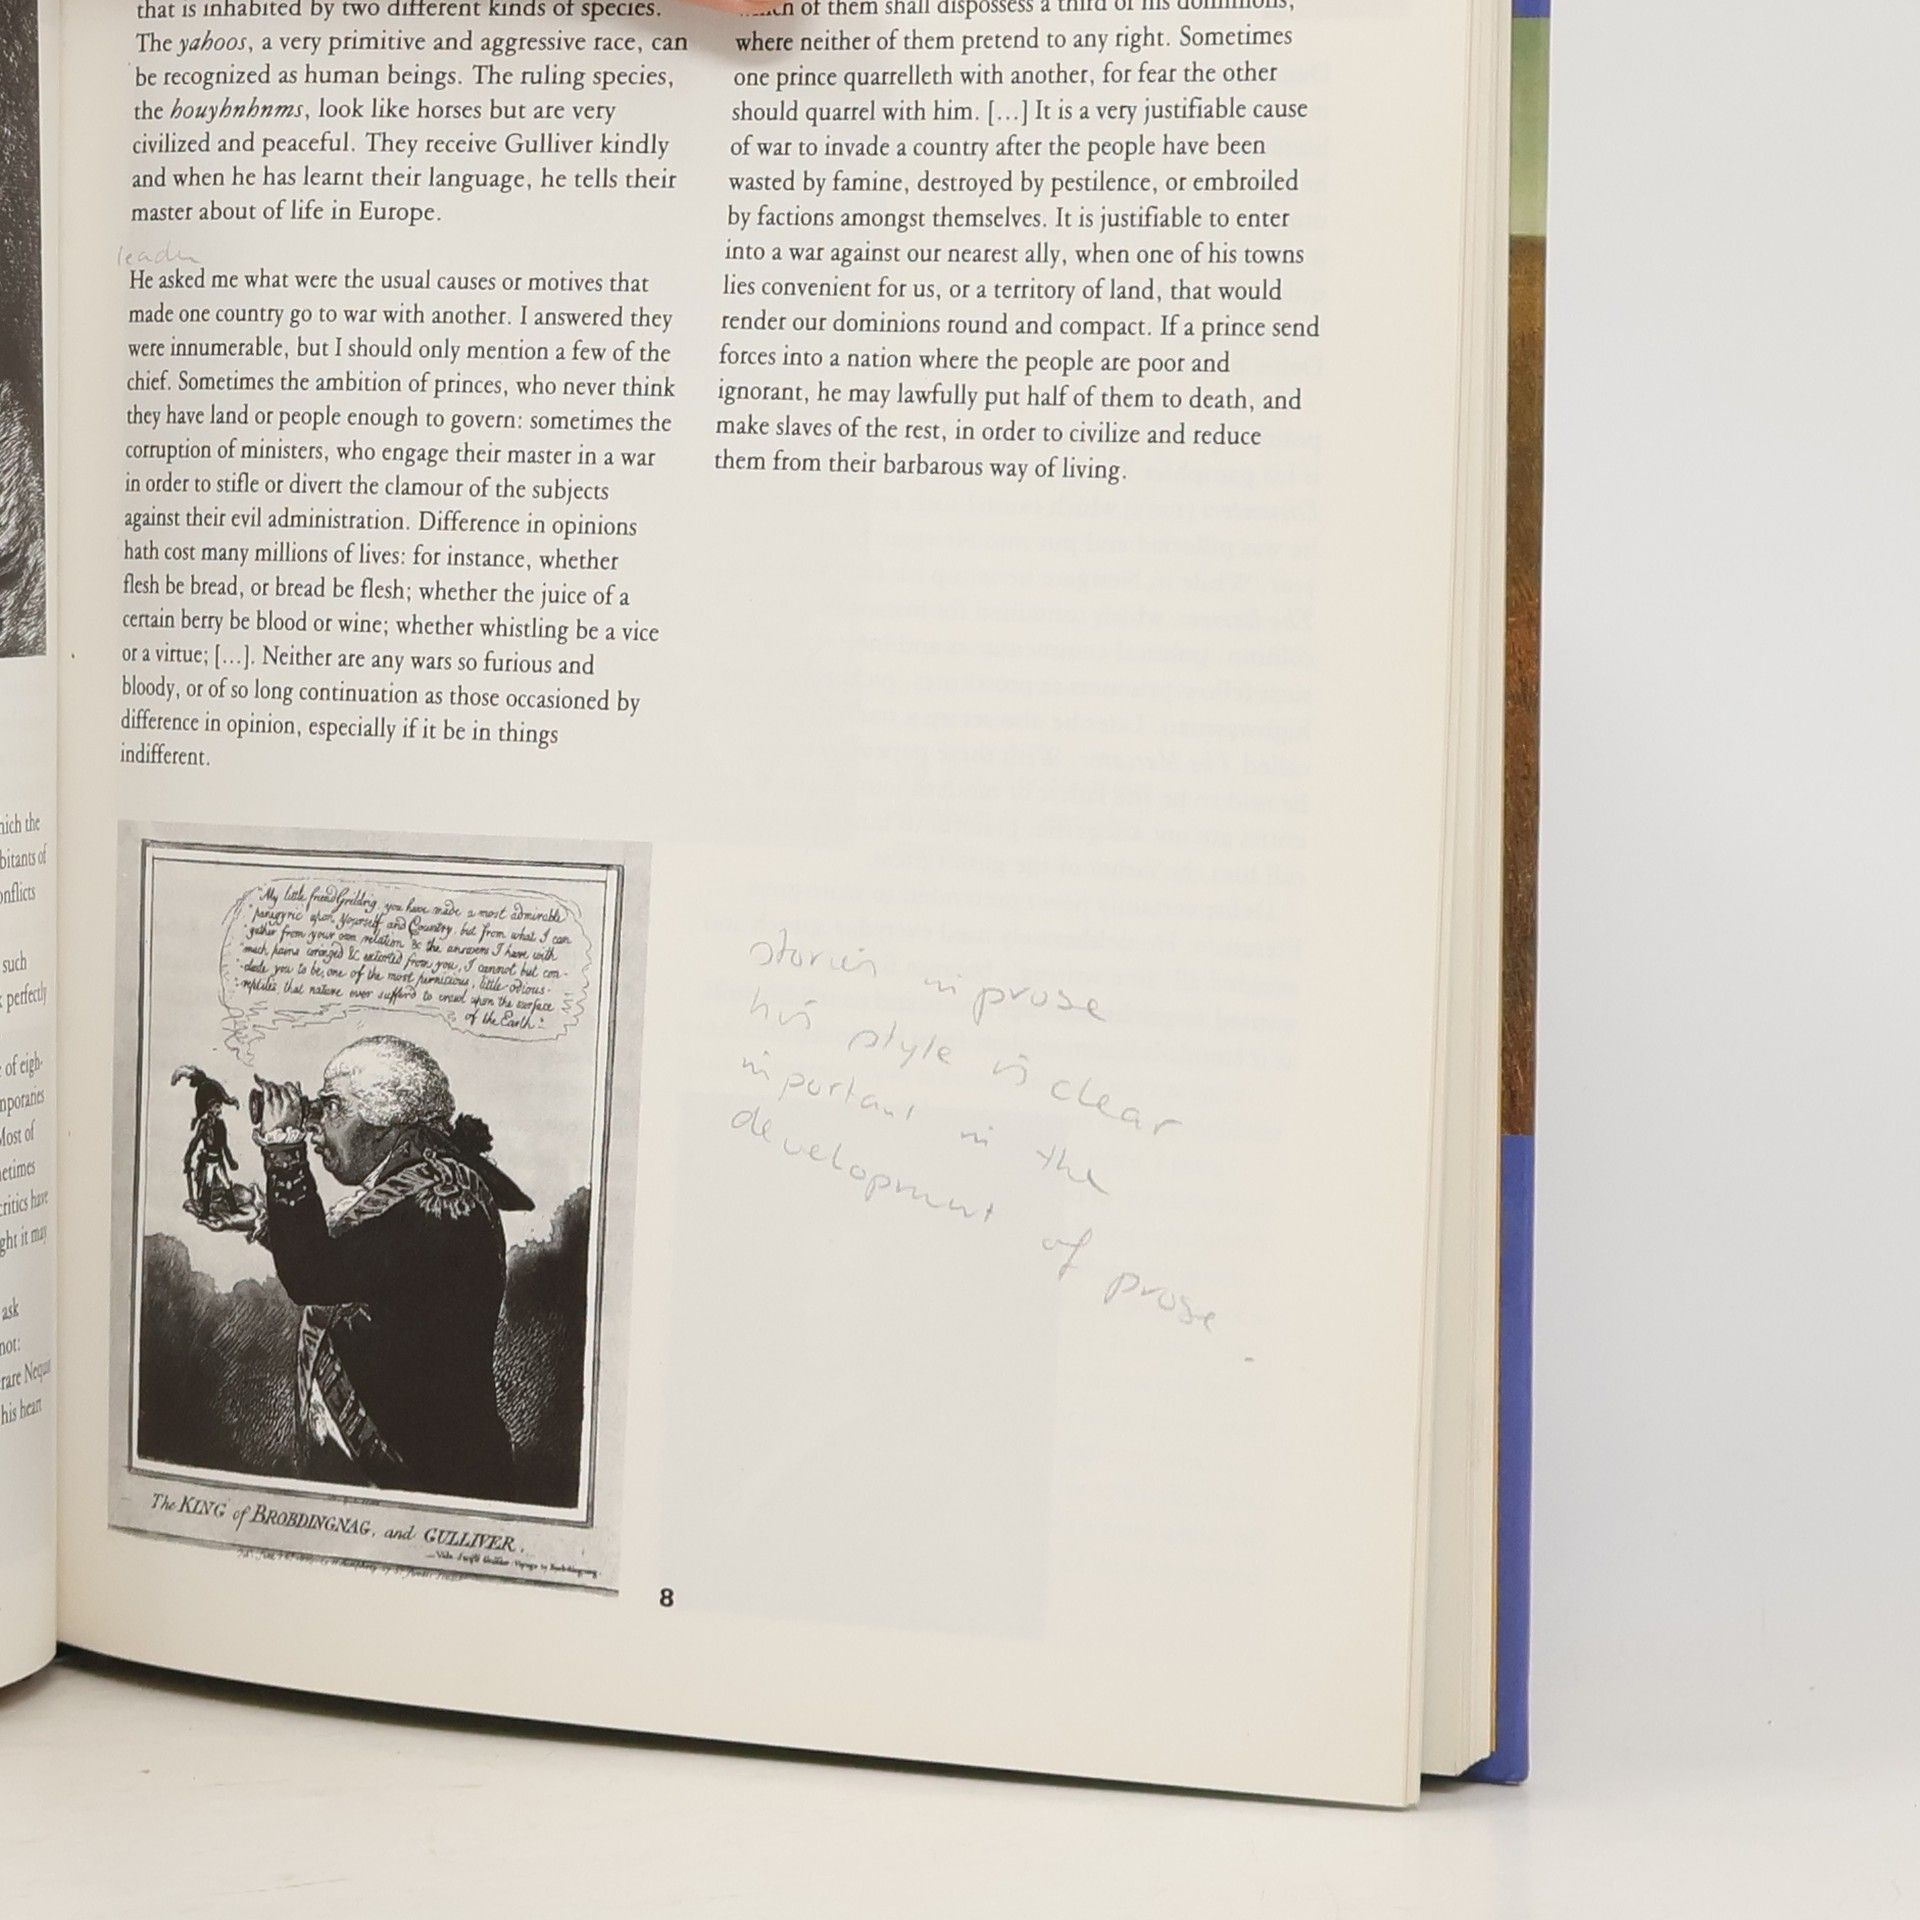 that is inhabited by two different kinds of species.
The yahoos, a very primitive and aggressive race, can
be recognized as human beings. The ruling species,
the houyhnhnms, look like horses but are very
civilized and peaceful. They receive Gulliver kindly
and when he has learnt their language, he tells their
master about of life in Europe.
leader
He asked me what were the usual causes or motives that
made one country go to war with another. I answered they
were innumerable, but I should only mention a few of the
chief. Sometimes the ambition of princes, who never think
they have land or people enough to govern: sometimes the
corruption of ministers, who engage their master in a war
in order to stifle or divert the clamour of the subjects
against their evil administration. Difference in opinions
hath cost many millions of lives: for instance, whether
flesh be bread, or bread be flesh; whether the juice of a
certain berry be blood or wine; whether whistling be a vice
or a virtue; [...]. Neither are any wars so furious and
bloody, or of so long continuation as those occasioned by
difference in opinion, especially if it be in things
indifferent.
of them shall dispossess a third of his dominions,
where neither of them pretend to any right. Sometimes
one prince quarrelleth with another, for fear the other
should quarrel with him. [...] It is a very justifiable cause
of war to invade a country after the people have been
wasted by famine, destroyed by pestilence, or embroiled
by factions amongst themselves. It is justifiable to enter
into a war against our nearest ally, when one of his towns
lies convenient for us, or a territory of land, that would
render our dominions round and compact. If a prince send
forces into a nation where the people are poor and
ignorant, he may lawfully put half of them to death, and
make slaves of the rest, in order to civilize and reduce
them from their barbarous way of living.
"My little friend Grildrig, you have made a most admirable
"panegyric upon Yourself and Country, but from what I can
"gather from your own relation & the answers I have with
"much pains wringed & extorted from you, I cannot but con-
-clude you to be, one of the most pernicious, little odious-
-reptiles, that nature ever suffer'd to crawl upon the surface
of the Earth"
The KING of BROBDINGNAG, and GULLIVER.
stories in prose
his style is clear
important in the
development of prose
8
hich the
bitants of
onflicts
such
perfectly
of eigh-
mporaries
Most of
netimes
critics have
ght it may
ask
not:
rare
his heart